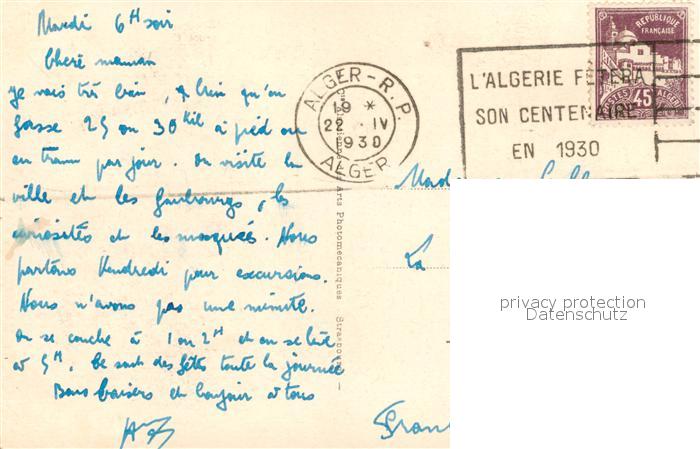 Mardi 6H soir
Chère maman
Je vais très bien, bien qu'on
fasse 25 ou 30 kil à pied ou
en tram par jour. On visite la
ville et les faubourgs, les
curiosités et les mosquées. Nous
partons Vendredi pour excursions.
Nous n'avons pas une minute.
On se couche à 1 ou 2H et on se lève
à 5H. Ce sont des fêtes toute la journée
Bons baisers et bonjour à tous
ALGER - R.P.
19 *
22 - IV
1930
ALGER
L'ALGERIE FETERA
SON CENTENAIRE
EN 1930
REPUBLIQUE
FRANÇAISE
POSTES ALGERIE
45c
Arts Photomécaniques Strasbourg
La
privacy protection
Datenschutz